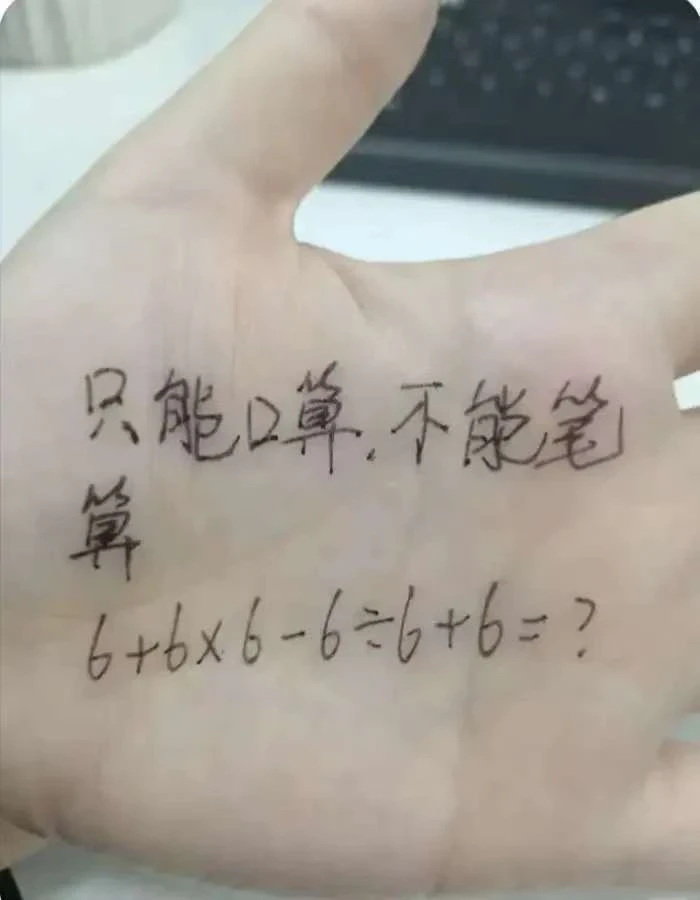 只能口算，不能笔
算
6+6×6-6÷6+6=?